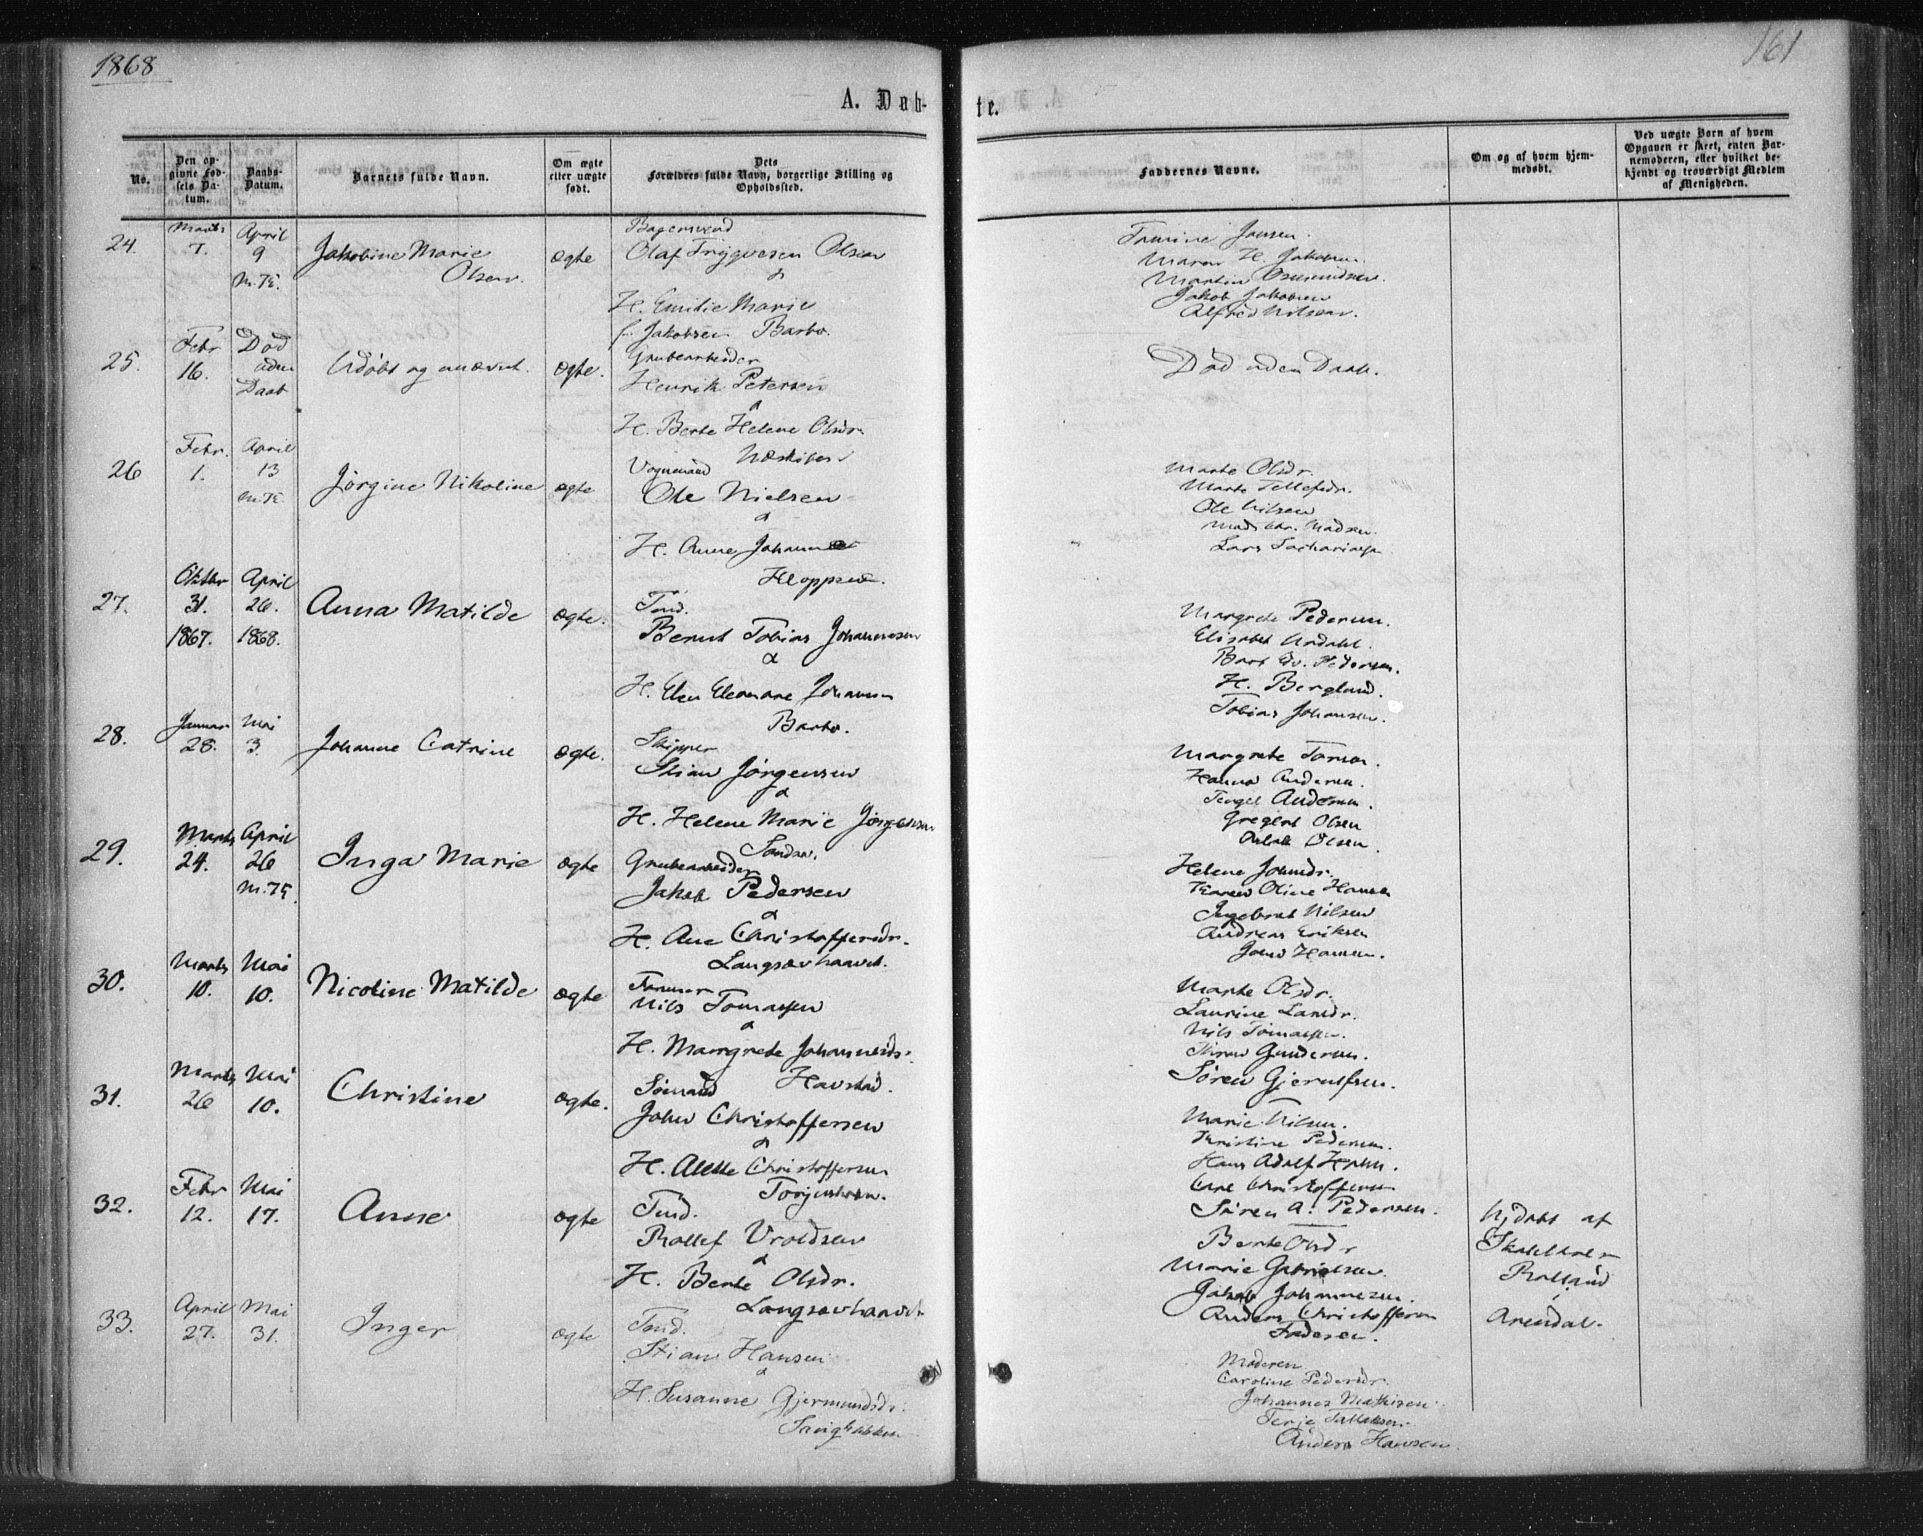 1868
161
A. Døb-
te.
No.
Den op-
givne Fød-
sels Da-
tum.
Daabs-
Datum.
Barnets fulde Navn.
Om ægte
eller uægte
født.
Dets
Forældres fulde Navn, borgerlige Stilling og
Opholdssted.
Faddernes Navne.
Om og af hvem hjem-
medøbt.
Ved uægte Barn af hvem
Opgaven er skeet, enten Bar-
nemoderen, eller hvilket be-
kjendt og troværdigt Medlem
af Menigheden.
24.
Marts
7.
April
9
Jakobine Marie
Olsen.
ægte
Bagersvend
Olaf Trygvesen Olsen
&
H. Emilie Marie
f. Jakobsen Barbo.
Tomine Jansen.
Maren H. Jakobsen.
Martin Osmundsen.
Jakob Jakobsen
Alfred Nilsen.
25.
Febr
16.
Død
uden
Daab
Udøbt og unævnt.
ægte.
Grubearbeider
Henrik Petersen
&
H. Berte Helene Olsdr.
Død uden Daab.
26
Febr.
1.
April
13
Jørgine Nikoline
ægte
Vognmand
Ole Nielsen
&
H. Anne Johanne
Kloppene.
Marte Olsdr.
Marte Tellefsdr.
Ole Nilsen
Mads Chr. Madsen.
Lars Sachariasen
27.
Oktbr
31.
1867.
April
26.
1868.
Anna Matilde
ægte.
Tmd.
Bernt Tobias Johannesen
&
H. Elen Eleonore Johansen
Barbo.
Margrete Pedersen.
Elisabet Urdahl.
H. Berglund.
Tobias Johansen.
28.
Januar
28.
Mai
3.
Johanne Catrine
ægte.
Skipper
Stian Jørgensen
&
H. Helene Marie Jørgensen
Margrete
Hanna Andersen.
Tengel Andersen.
Gregert Olsen
Aslak Olsen.
29.
Marts
24.
April
26
Inga Marie
ægte
Grubearbeider
Jakob Pedersen
&
H. Ane Christoffersdr.
Langsævhaavet.
Helene
Karen Oline Hansen
Ingebret Nilsen
Andreas Eriksen
John Hansen.
30.
Marts
10.
Mai
10.
Nicoline Matilde
ægte
Tømmer
Nils Tomassen
&
H. Margrete Johannesdr.
Havstad.
Marte Olsdr.
Laurine Larsdr.
Nils Tomassen
Gundersen.
Søren Gjerulfsen.
31.
Marts
26
Mai
10.
Christine
ægte.
Sømand
John Christoffersen
&
H. Alette Christoffersen
Marie Nilsen.
Kristine Pedersen.
Hans Adolf
Carl Christoffersen
Søren A. Pedersen.
32.
Febr
12.
Mai
17.
Anne
ægte
Tmd.
Rollef Vroldsen
&
H. Berte Olsdr.
Langsævhaavet
Berte Olsdr
Marie Gabrielsen.
Jakob Johannesen.
Anders Christoffersen
Faderen.
Hjdøbt af
Arendal.
33.
April
27.
Mai
31.
Inger
ægte
Tmd.
Stian Hansen
&
H. Susanne Gjermundsdr.
Moderen.
Caroline Pedersdr.
Johannes Mathisen
Terje
Anders Hansen.